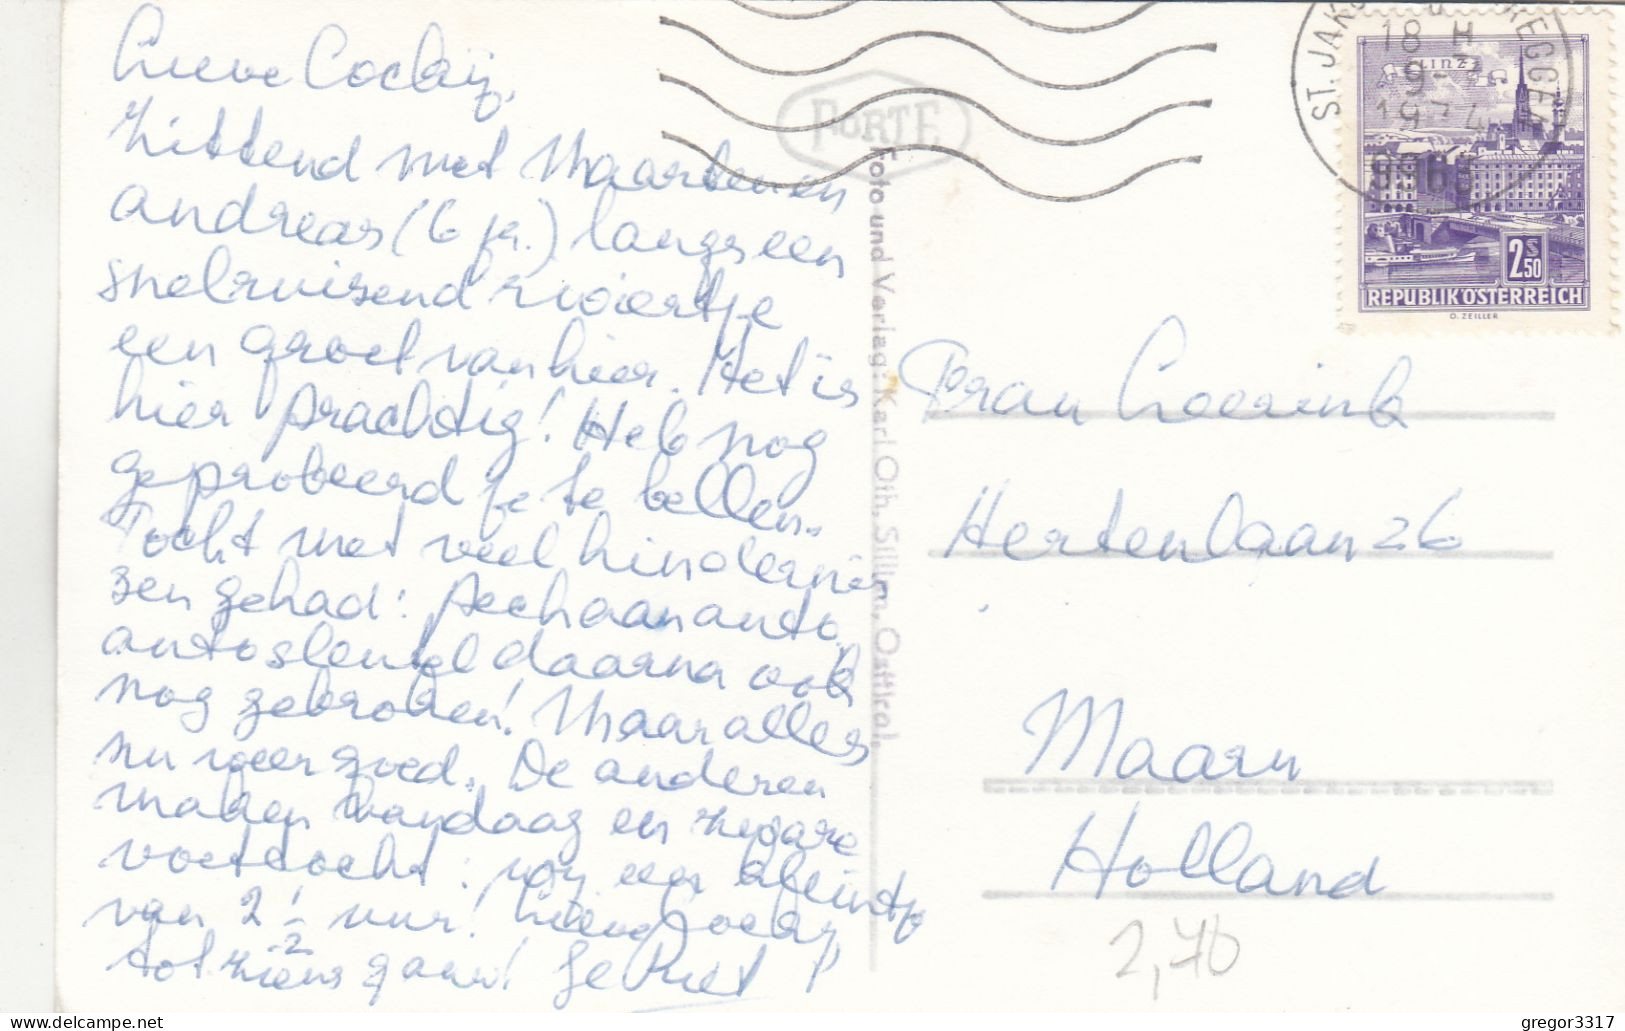 Lieve Cockÿ,
Zittend met Maarten en
Andreas (6 jr.) langs een
snelruisend riviertje
een groet van hier. Het is
hier prachtig! Heb nog
geprobeerd je te bellen.
Tocht met veel hindernis
sen gehad: pech aan auto
autosleutel daarna ook
nog gebroken! Maar alles
nu weer goed. De anderen
maken vandaag een zware
voettocht: wij een kleintje
van 2 1/2 uur! Lieve Cocky,
tot ziens gauw! Je Piet
PORTE
Foto und Verlag: Karl Oth, Sillian, Osttirol.
ST. JAK
REGGEN
18 H
9-
1974
9963
LINZ
2S50
REPUBLIK ÖSTERREICH
O. ZEILLER
Frau
Hertenlaan 26
Maarn
Holland
2,70
delcampe.net
gregor3317